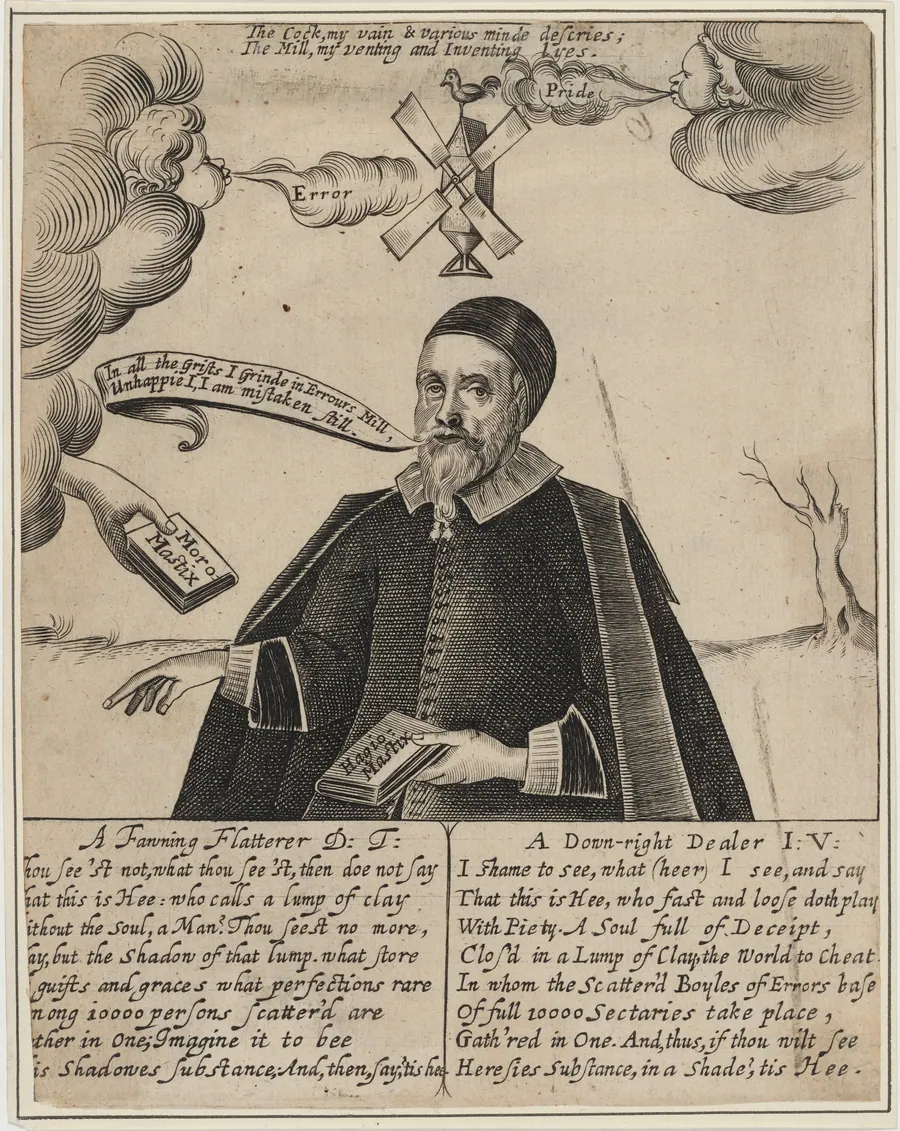 The Cock, my vain & various minde descries;
The Mill, my venting and Inventing Lyes.
Pride
Error
In all the Grists I Grinde in Errours Mill,
Unhappie I, I am mistaken still.
Moro-
Mastix
Hagio-
Mastix
A Fawning Flatterer D: T:
hou see'st not, what thou see'st, then doe not say
hat this is Hee: who calls a lump of clay
ithout the Soul, a Man? Thou seest no more,
ay, but the Shadow of that lump. what store
guifts and graces what perfections rare
mong 10000 persons scatter'd are
ther in One; Imagine it to bee
is Shadowes substance; And, then, say, 'tis hee
A Down-right Dealer I: V:
I shame to see, what (heer) I see, and say
That this is Hee, who fast and loose doth play
With Piety. A Soul full of Deceipt,
Clos'd in a Lump of Clay, the World to Cheat.
In whom the Scatter'd Boyles of Errors base
Of full 10000 Sectaries take place,
Gath'red in One. And, thus, if thou wilt see
Heresies Substance, in a Shade', tis Hee.